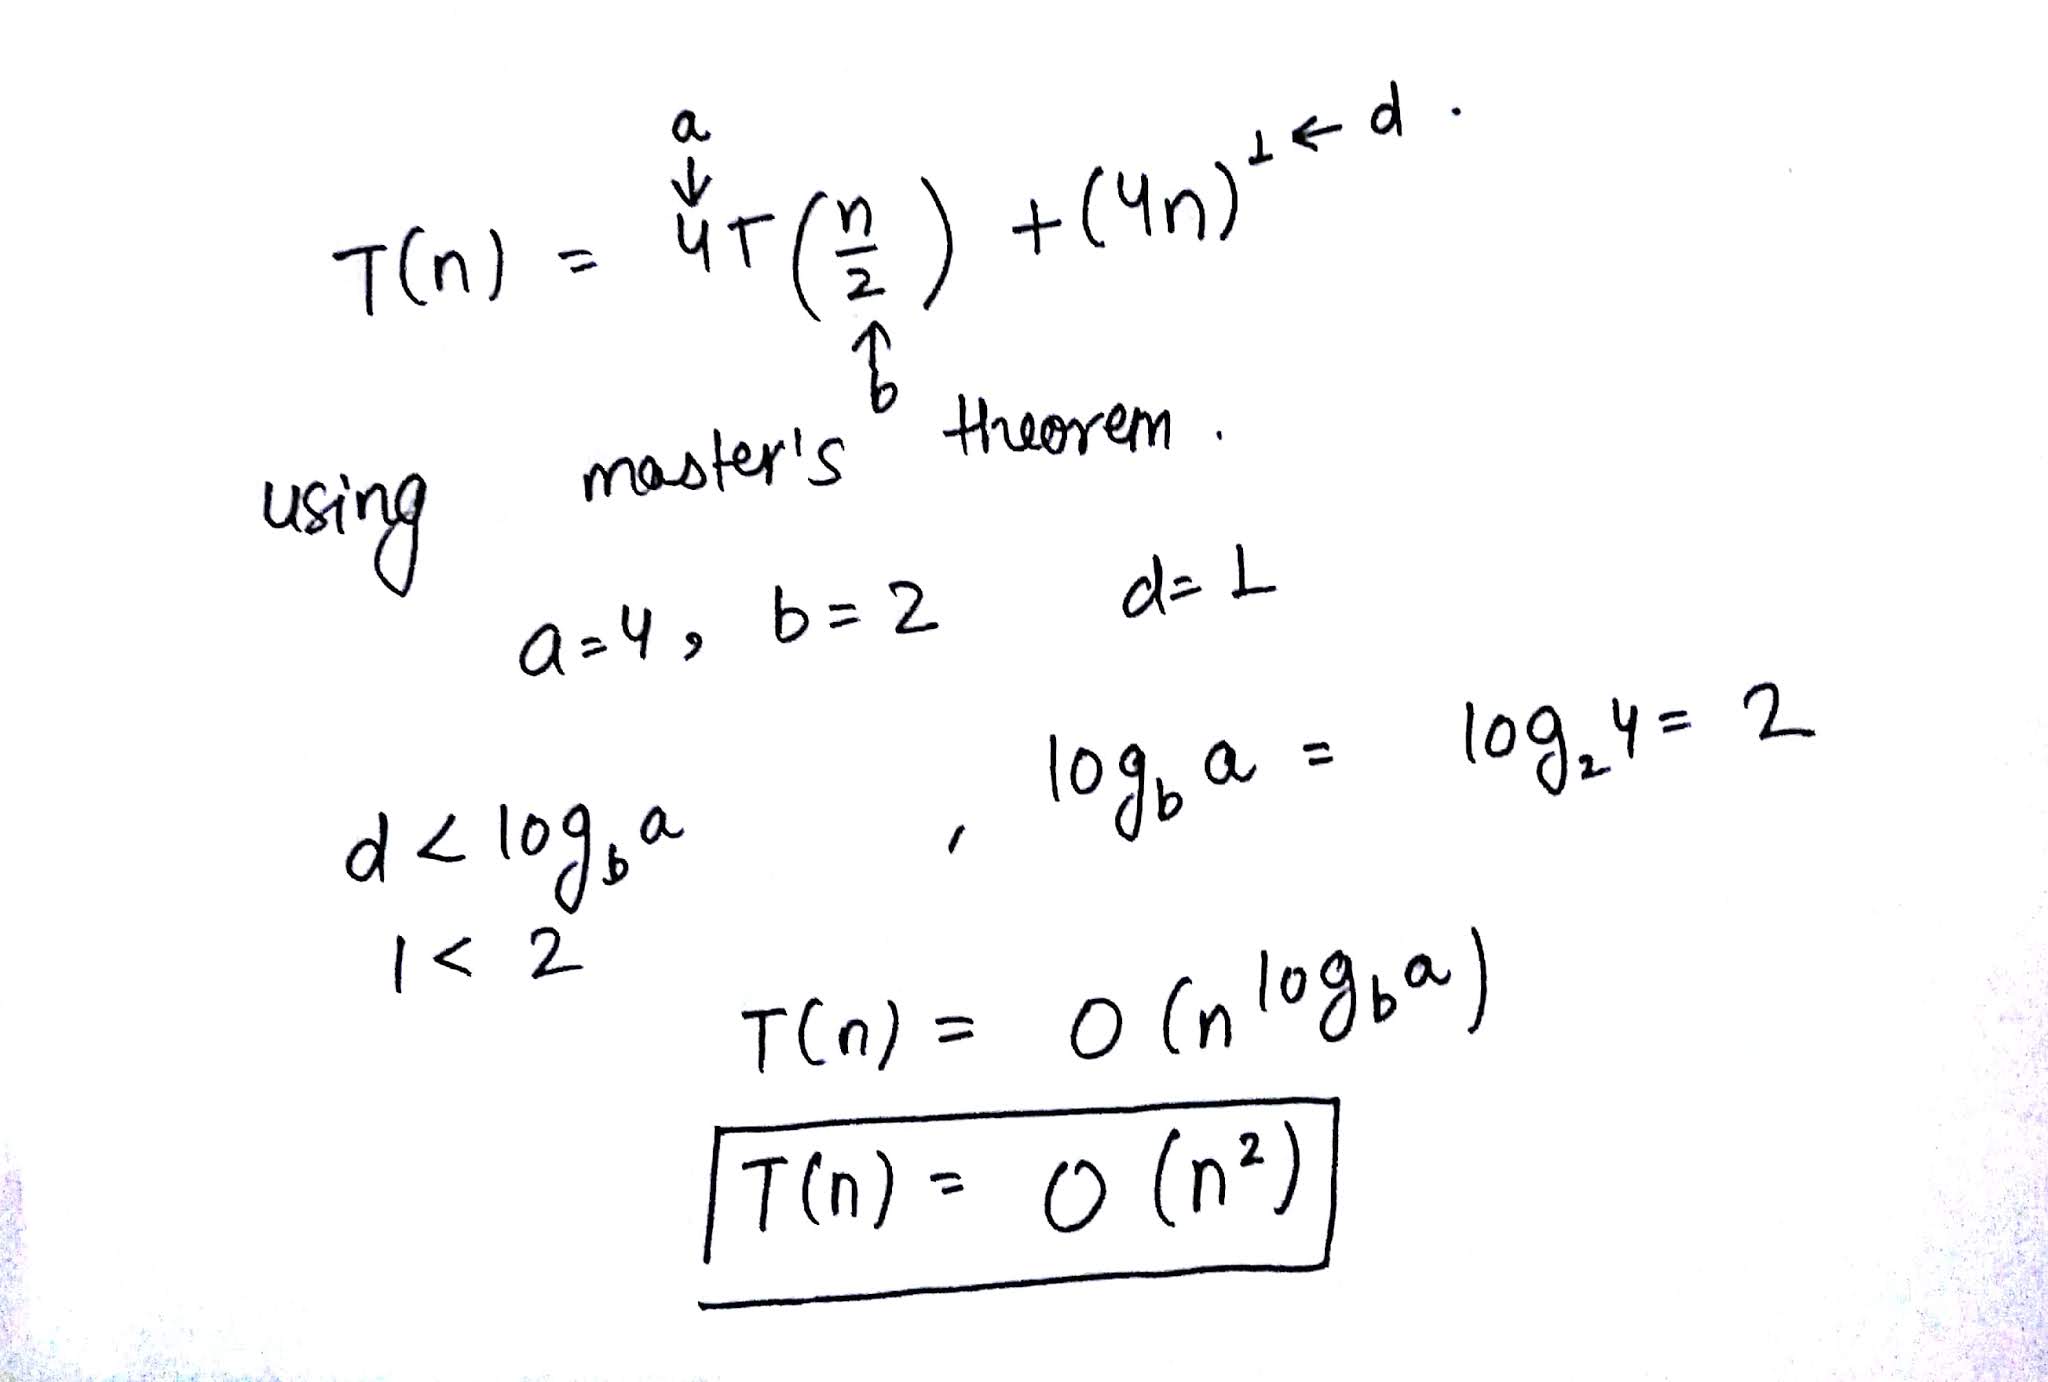 a
↓
T(n) = 4T(n/2) + (4n)¹ ← d .
↑
b
using master's theorem .
a=4, b=2 d=1
d < log_b a , log_b a = log₂4 = 2
1 < 2
T(n) = O(n^log_b a)
T(n) = O(n²)